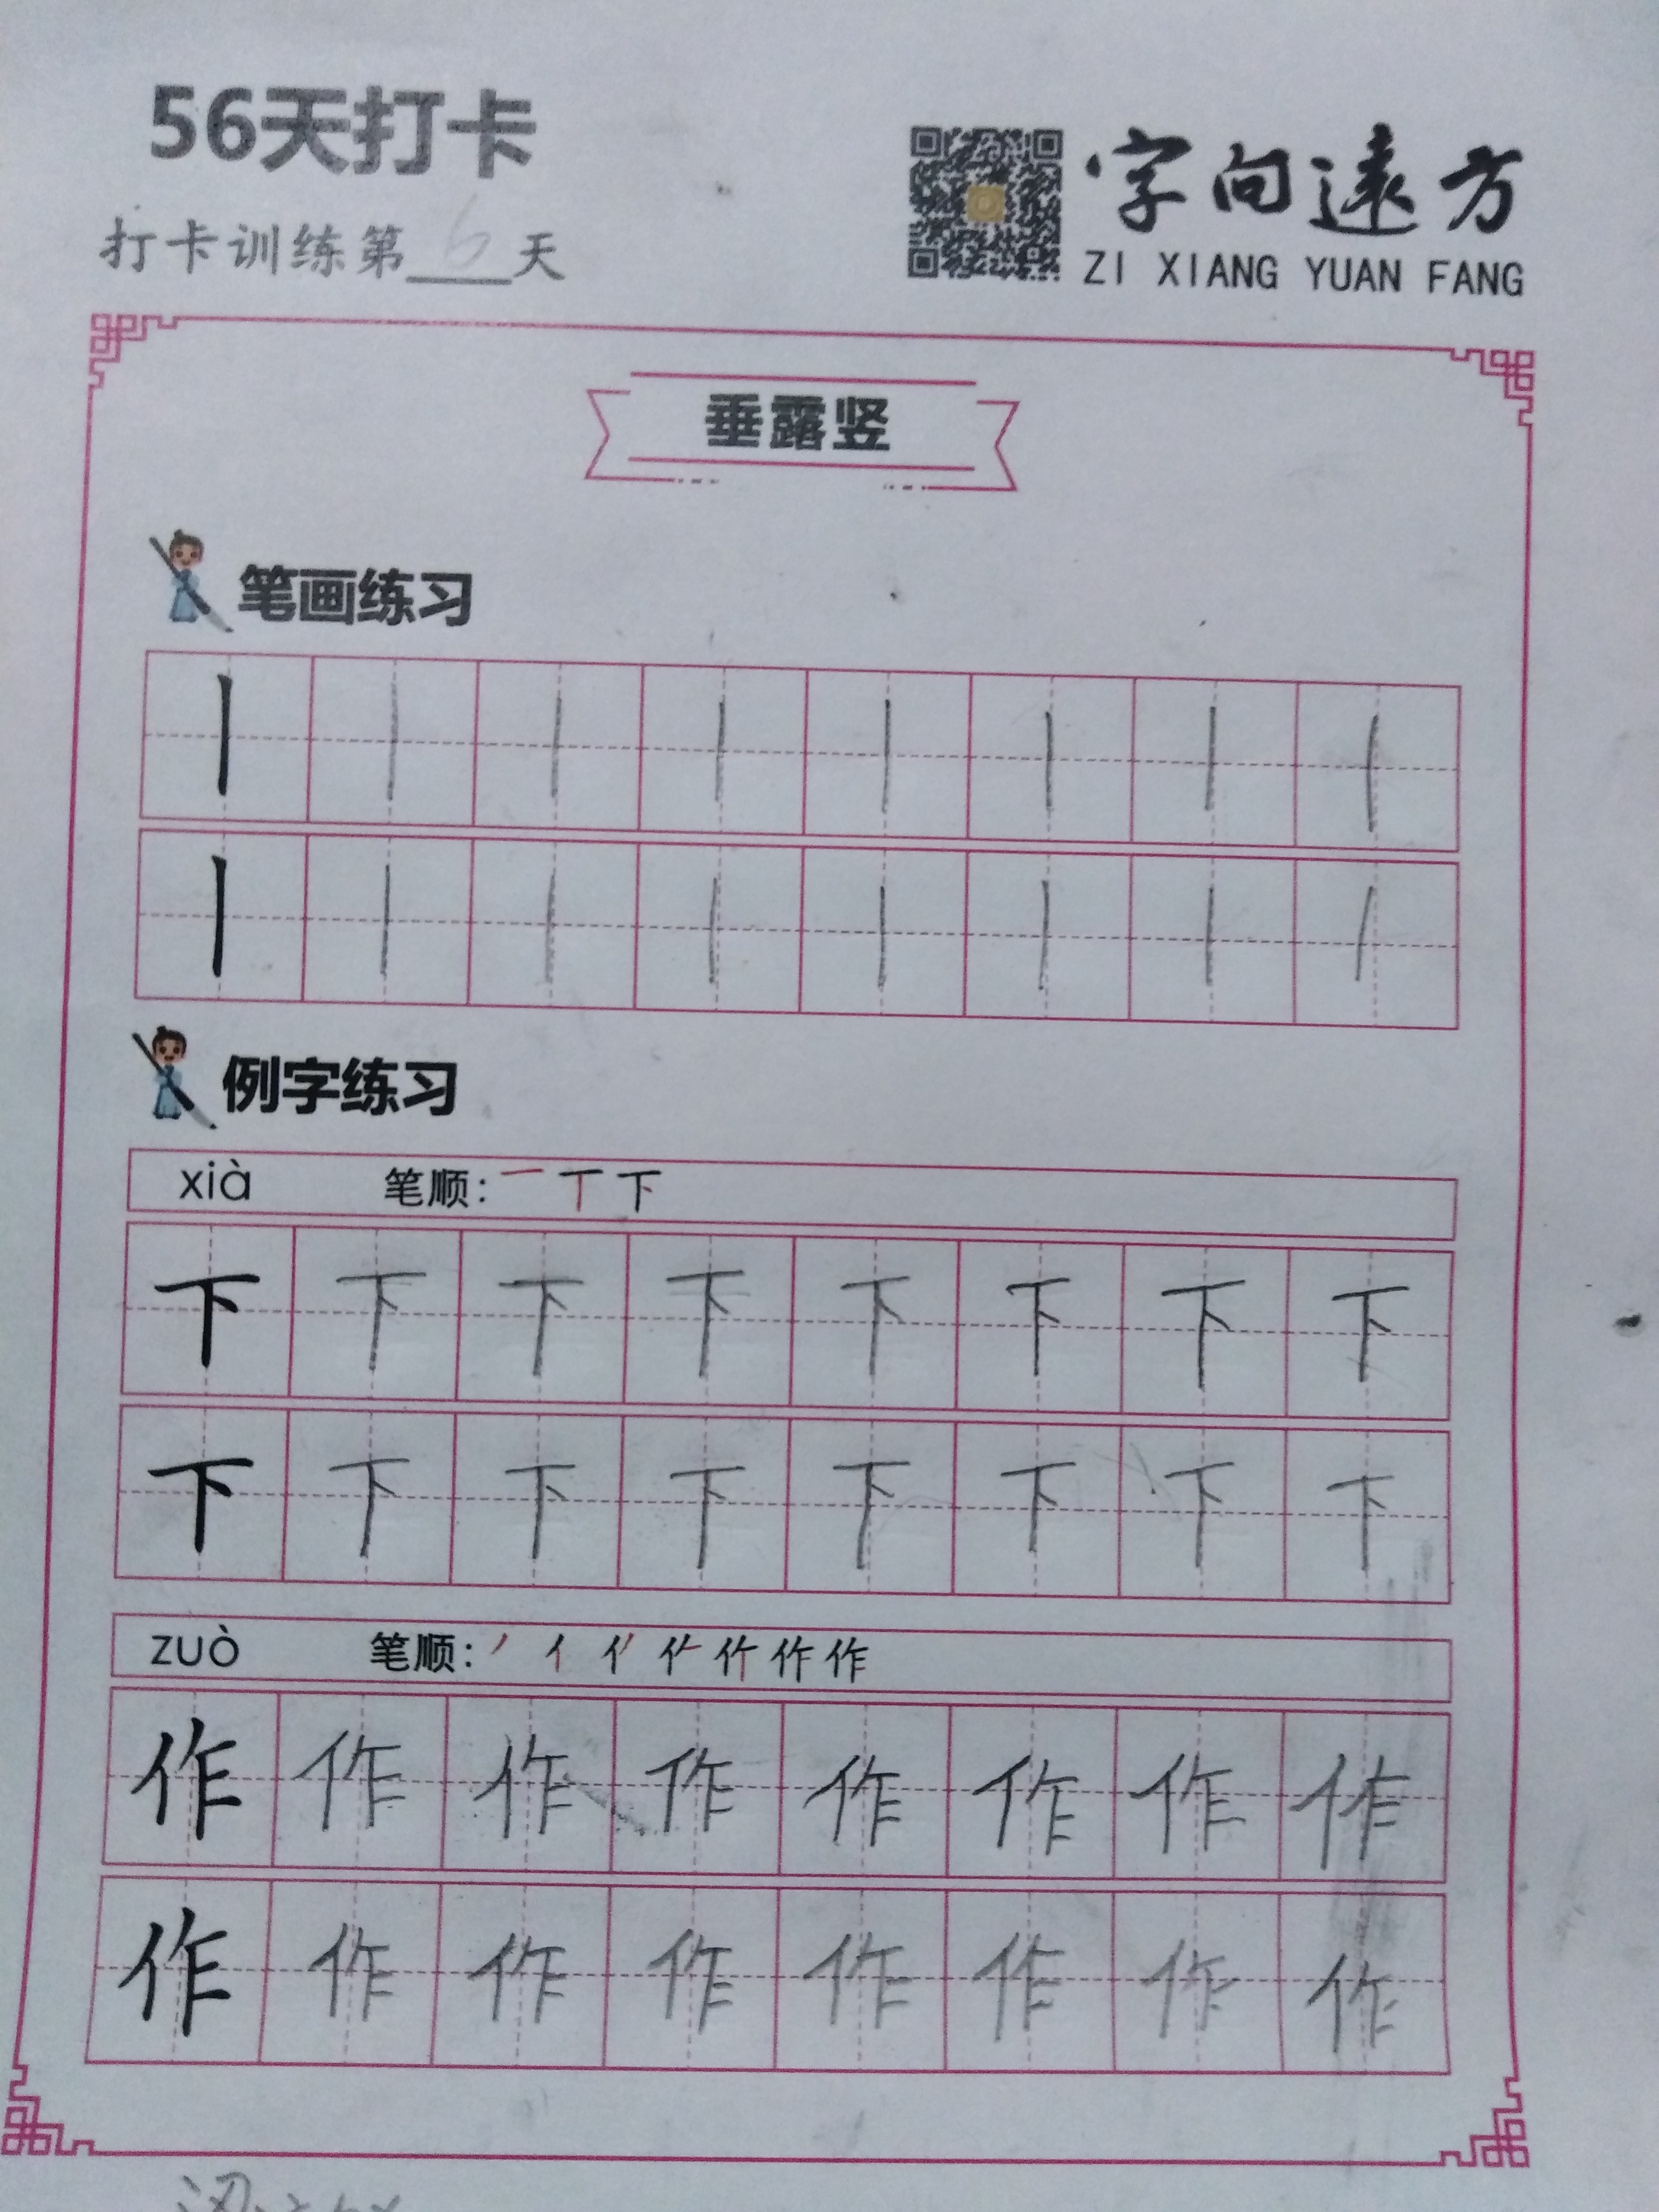 56天打卡
打卡训练第6天
字向遠方
ZI XIANG YUAN FANG
垂露竖
笔画练习
丨 丨 丨 丨 丨 丨 丨 丨
丨 丨 丨 丨 丨 丨 丨 丨
例字练习
xià 笔顺: 一 丅 下
下 下 下 下 下 下 下 下
下 下 下 下 下 下 下 下
zuò 笔顺: 丿 亻 作
作 作 作 作 作 作 作 作
作 作 作 作 作 作 作 作